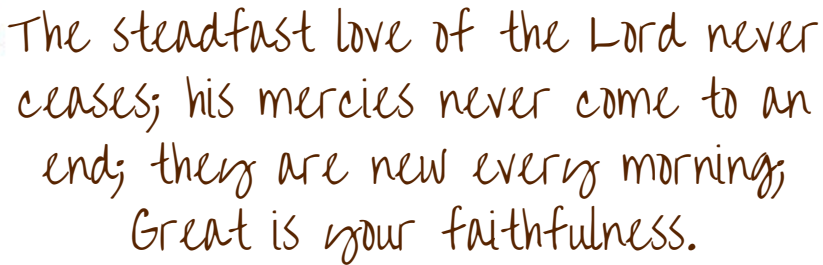 The steadfast love of the Lord never
ceases; his mercies never come to an
end; they are new every morning;
Great is your faithfulness.